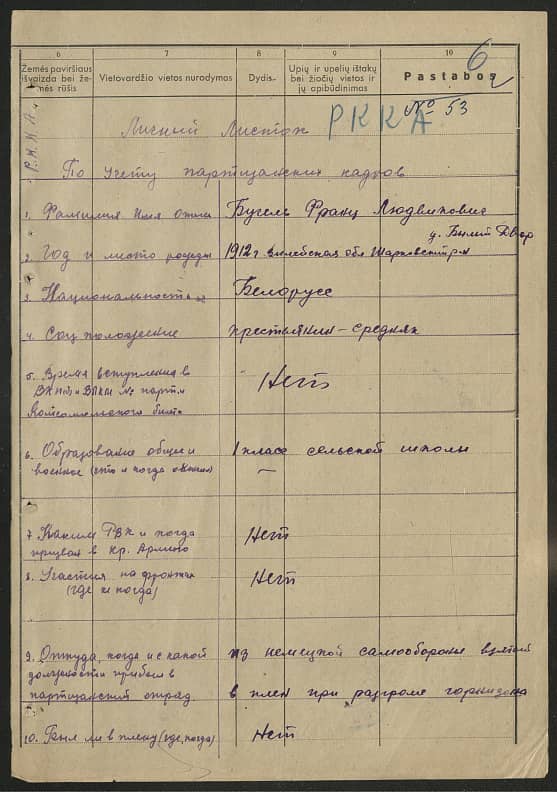 6
7
8
9
10
6
Žemės paviršiaus išvaizda bei žemės rūšis
Vietovardžio vietos nurodymas
Dydis
Upių ir upelių ištakų bei žiočių vietos ir jų apibūdinimas
Pastabos
№ 53
РККА
Личный Листок
По учету партизанских кадров
1. Фамилия Имя Отч. Бугель Франц Людвикович
2. Год и место рожден 1912 г Вилебская обл Шарковск р-н
3. Национальность Белорусс
4. Соц положение крестьянин – средняк
5. Время вступления в
ВКПб и ВЛКСМ № парт и
Комсомольского билета
Нет
6. Образование общее и 1 класс сельской школы
военное (что и когда окончил) –
7. Каким РВК и когда Нет
призван в Кр. Армию
8. Участия на фронтах Нет
(где и когда)
9. Откуда, когда и с какой из немецкой самообороны взятый
должности прибыл в
партизанский отряд в плен при разгроме гарнизона
10. Был ли в плену (где, когда) Нет